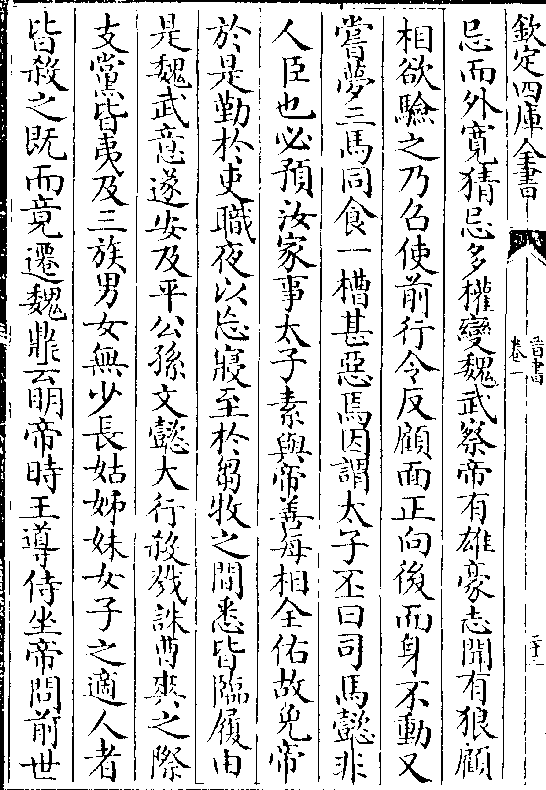 欽定四庫全書
晉書
卷一
忌而外寛猜忌多權變魏武察帝有雄豪志聞有狼顧
相欲驗之乃召使前行令反顧面正向後而身不動又
嘗夢三馬同食一槽甚惡焉因謂太子丕曰司馬懿非
人臣也必預汝家事太子素與帝善每相全佑故免帝
於是勤於吏職夜以忘寢至於芻牧之間悉皆臨履由
是魏武意遂安及平公孫文懿大行殺戮誅曹爽之際
支黨皆夷及三族男女無少長姑姊妹女子之適人者
皆殺之既而竟遷魏鼎云明帝時王導侍坐帝問前世